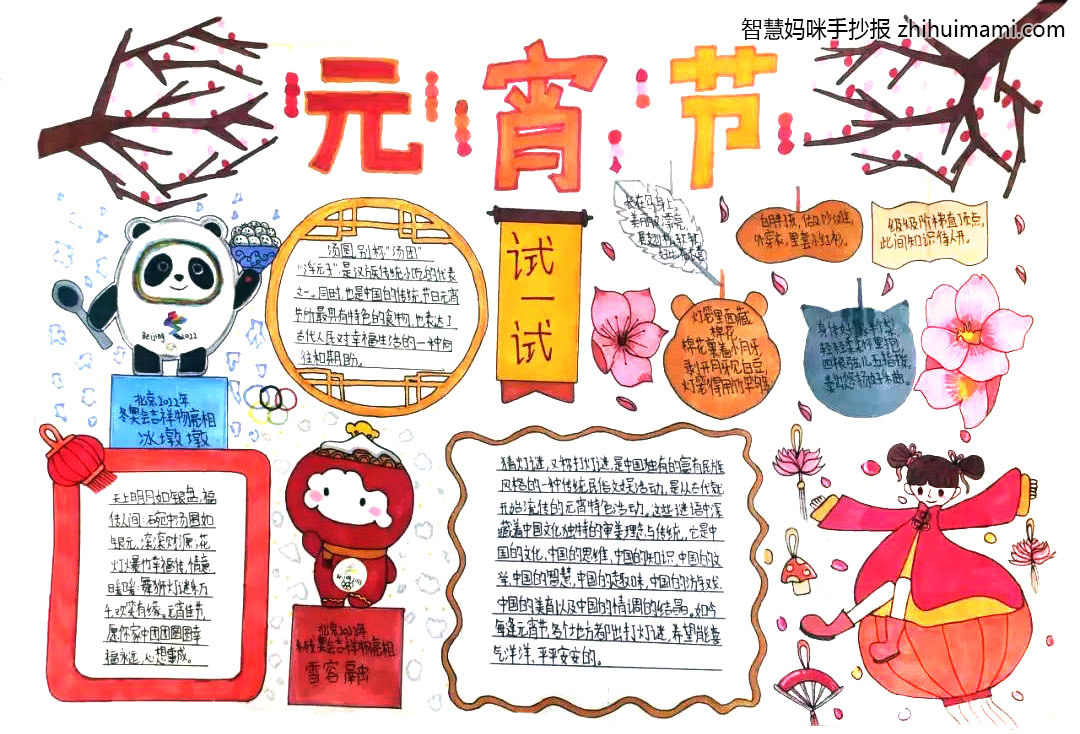 智慧妈咪手抄报 zhihuimami.com
元宵节
汤圆,别称"汤团"
"浮元子",是汉族传统小吃的代表
之一。同时,也是中国的传统节日元宵
节所最具有特色的食物,也表达了
古代人民对幸福生活的一种向
往和期盼。
试一试
长在鸟身上,
白胖孩,
外穿衣,里套小红衫。
级级阶梯直顶点,
此间知识待人开。
灯笼里面藏
棉花
棉花裹着小月牙
剥开月牙见白豆
Beijing 2022
北京2022年
冬奥会吉祥物亮相
冰墩墩
天上明月如银盘,福
佳人间;碗中汤圆如
银元,滚滚财源;花
灯火爆竹幸福佳,情意
日暖暖;舞狮灯谜乐万
千,欢笑有缘。元宵佳节,
愿你家中团团圆圆幸
福永远,心想事成。
北京2022年
冬残奥会吉祥物亮相
雪容融
猜灯谜,又称打灯谜,是中国独有的富有民族
风格的一种传统民俗文娱活动,是从古代就
开始流传的元宵特色活动。这些谜语中深
藏着中国文化独特的审美理念与传统,它是中
国的文化,中国的思维,中国的知识,中国的文
学,中国的智慧,中国的趣味,中国的游戏,
中国的美育以及中国的情调的结晶。如今
每逢元宵节,各个地方都出打灯谜,希望能喜
气洋洋,平平安安的。